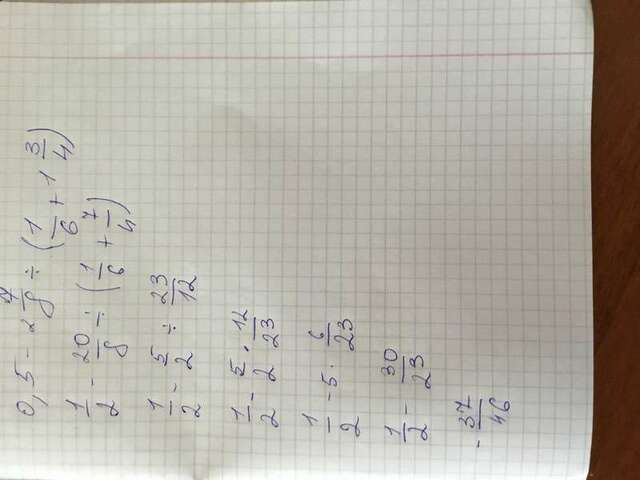 0,5 - 2 7/8 ÷ (1/6 + 1 3/4)
1/2 - 20/8 ÷ (1/6 + 7/4)
1/2 - 5/2 ÷ 23/12
1/2 - 5/2 · 12/23
1/2 - 5 · 6/23
1/2 - 30/23
- 37/46